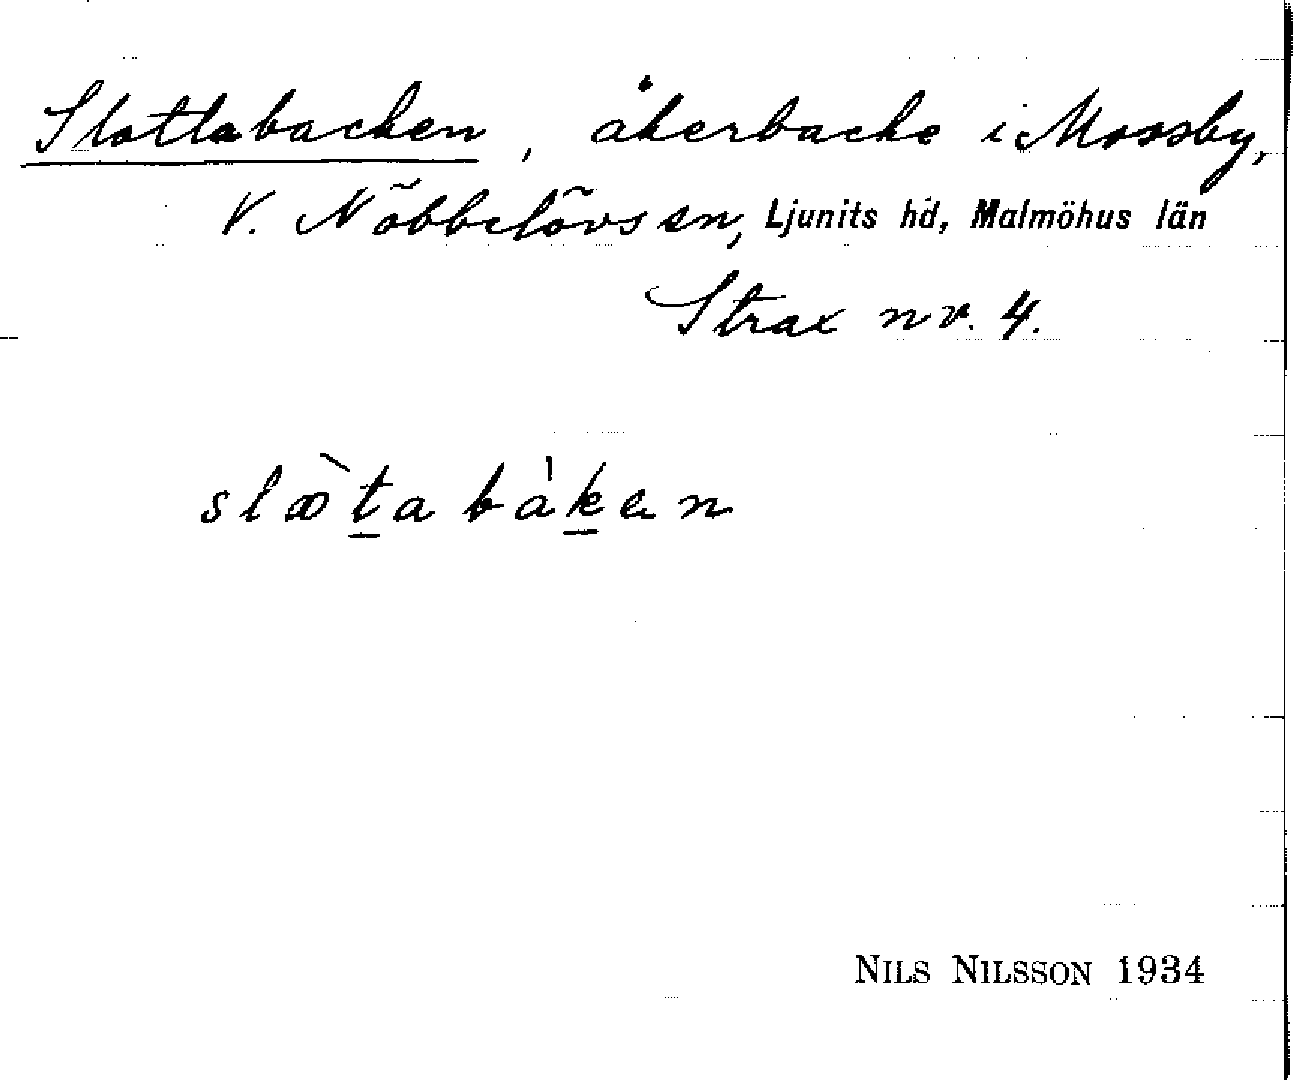 Slottabacken, åkerbacke i Mossby,
V. Nöbbelövs sn, Ljunits hd, Malmöhus län
Strax nv. 4.
slæ̀ta bàken
NILS NILSSON 1934